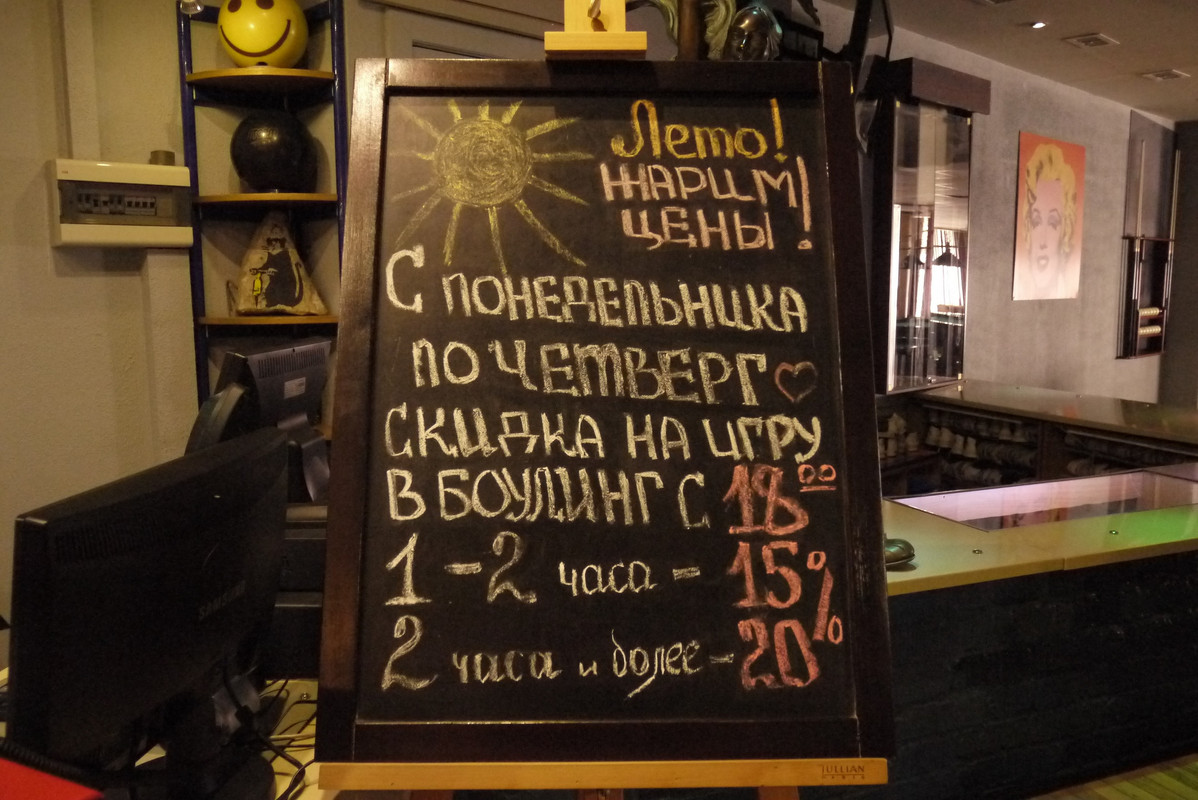 Лето!
ЖАРИМ
ЦЕНЫ!
С ПОНЕДЕЛЬНИКА
ПО ЧЕТВЕРГ
СКИДКА НА ИГРУ
В БОУЛИНГ С 18 00
1 - 2 часа - 15%
2 часа и более - 20%
JULLIAN
PARIS
SAMSUNG